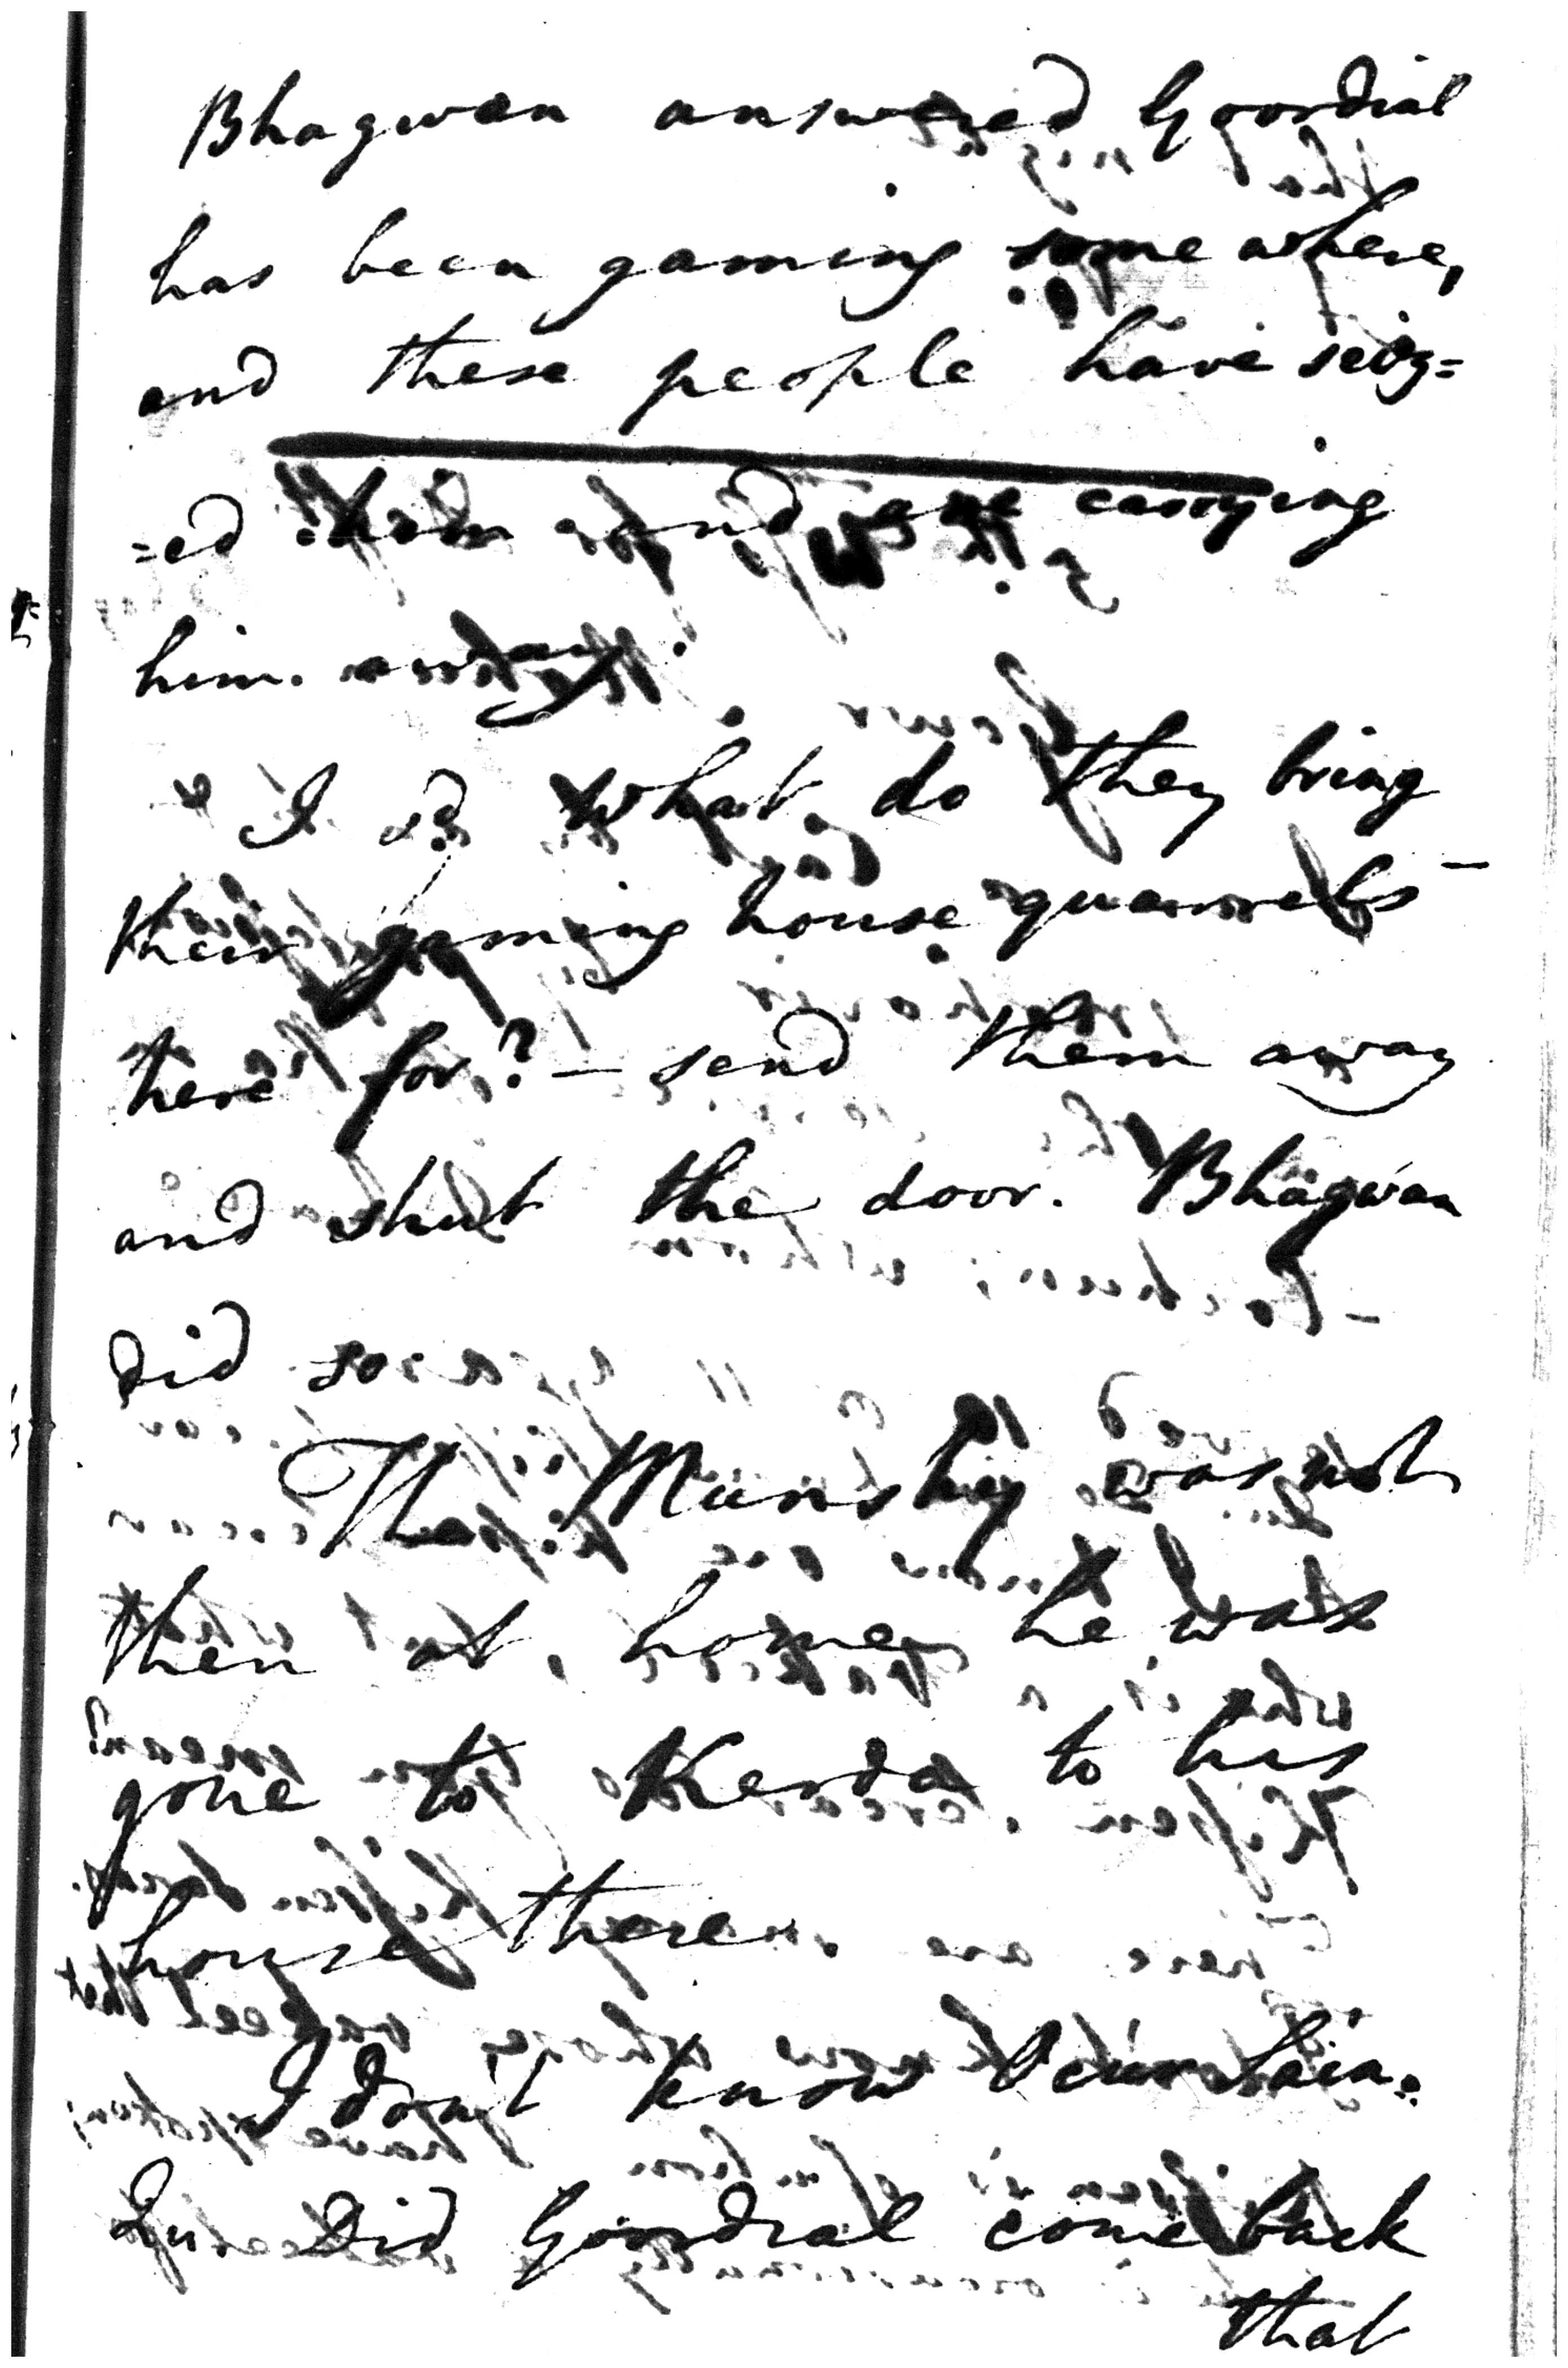 Bhagwan answered Goordial
has been gaming some where,
and these people have seiz=
=ed him and are carrying
him. away.
I sd. What do they bring
their gaming house quarrels
here for? – send them away
and shut the door. Bhagwan
did so.
The Munshy was not
then at home, he was
gone to Kerda to his
house there.
I don't know
Qu Did Goordial come back
that